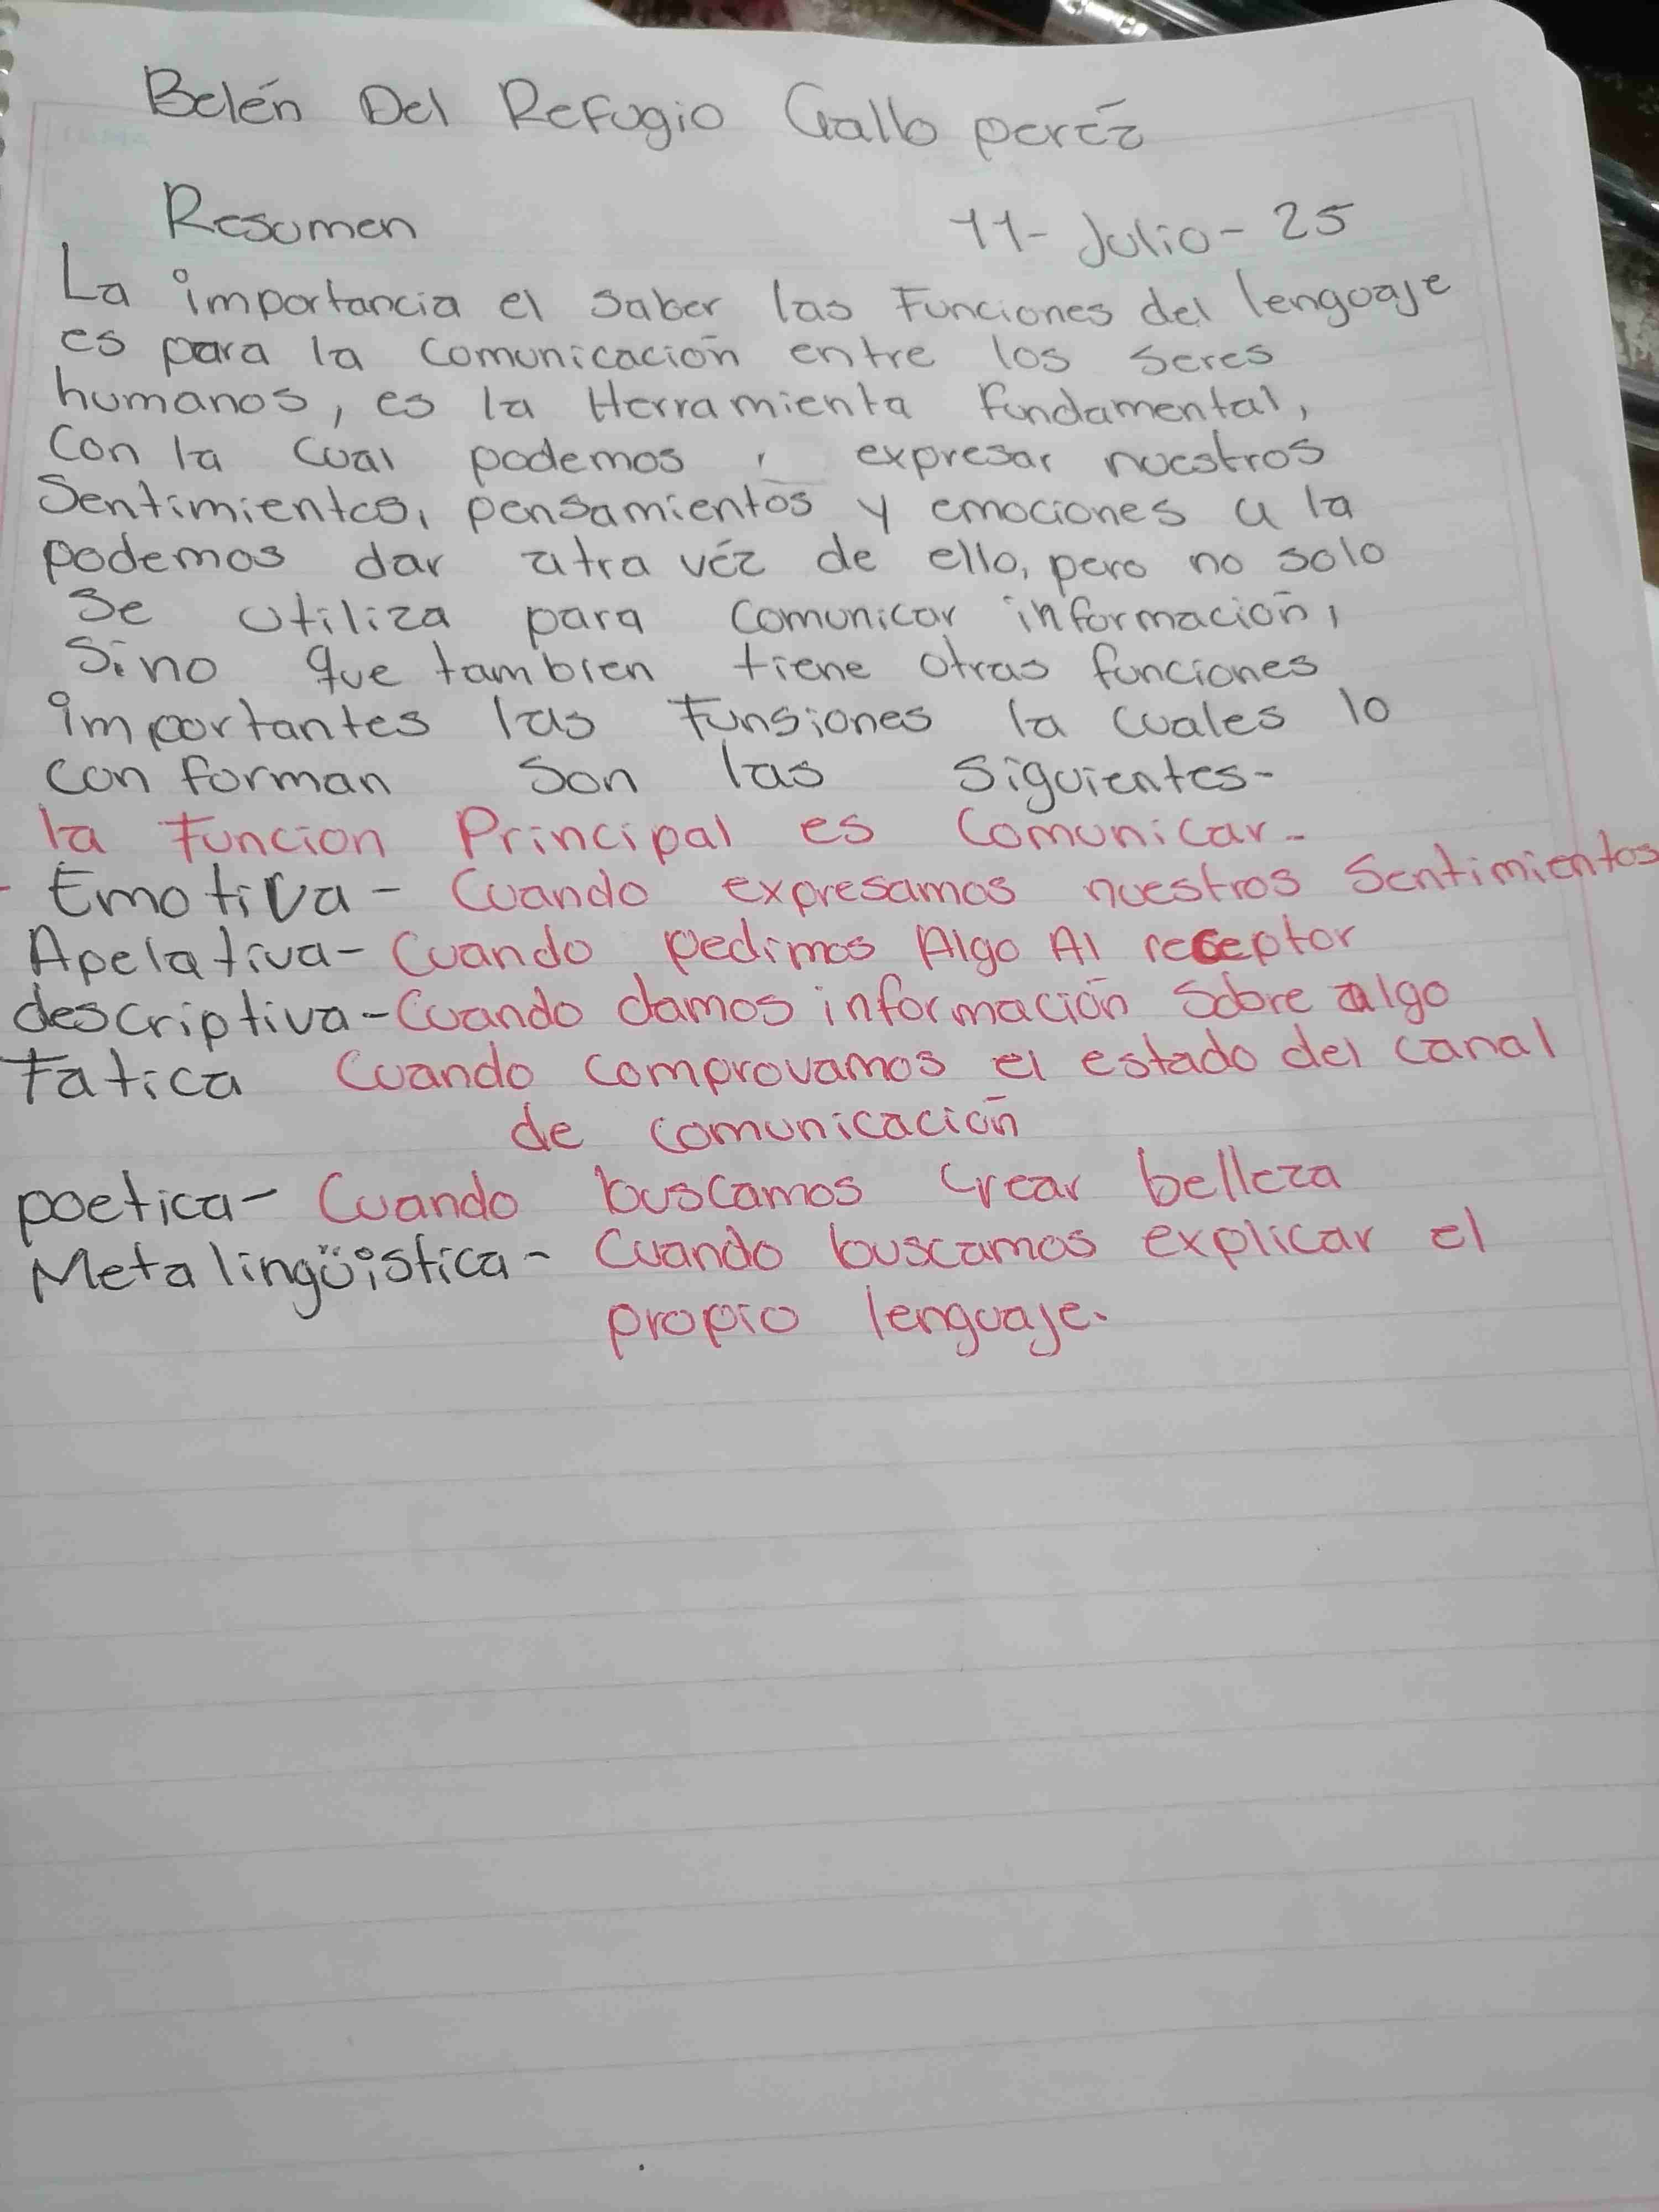 Belén Del Refugio Gallo peréz
Resumen 11-Julio-25
La importancia el saber las Funciones del lenguaje
es para la comunicación entre los seres
humanos, es la Herramienta fundamental,
Con la cual podemos , expresar nuestros
Sentimientos, pensamientos y emociones a la
podemos dar atra véz de ello, pero no solo
Se utiliza para comunicar información,
Sino que tambien tiene otras funciones
importantes las Funsiones la cuales lo
con forman son las siguientes-
la Funcion Principal es Comunicar-
- Emotiva - Cuando expresamos nuestros Sentimientos
Apelativa - Cuando pedimos Algo Al receptor
descriptiva - Cuando damos información Sobre algo
Fatica Cuando comprovamos el estado del canal
de comunicación
poetica - Cuando buscamos Crear belleza
Meta lingüistica - Cuando buscamos explicar el
propio lenguaje.